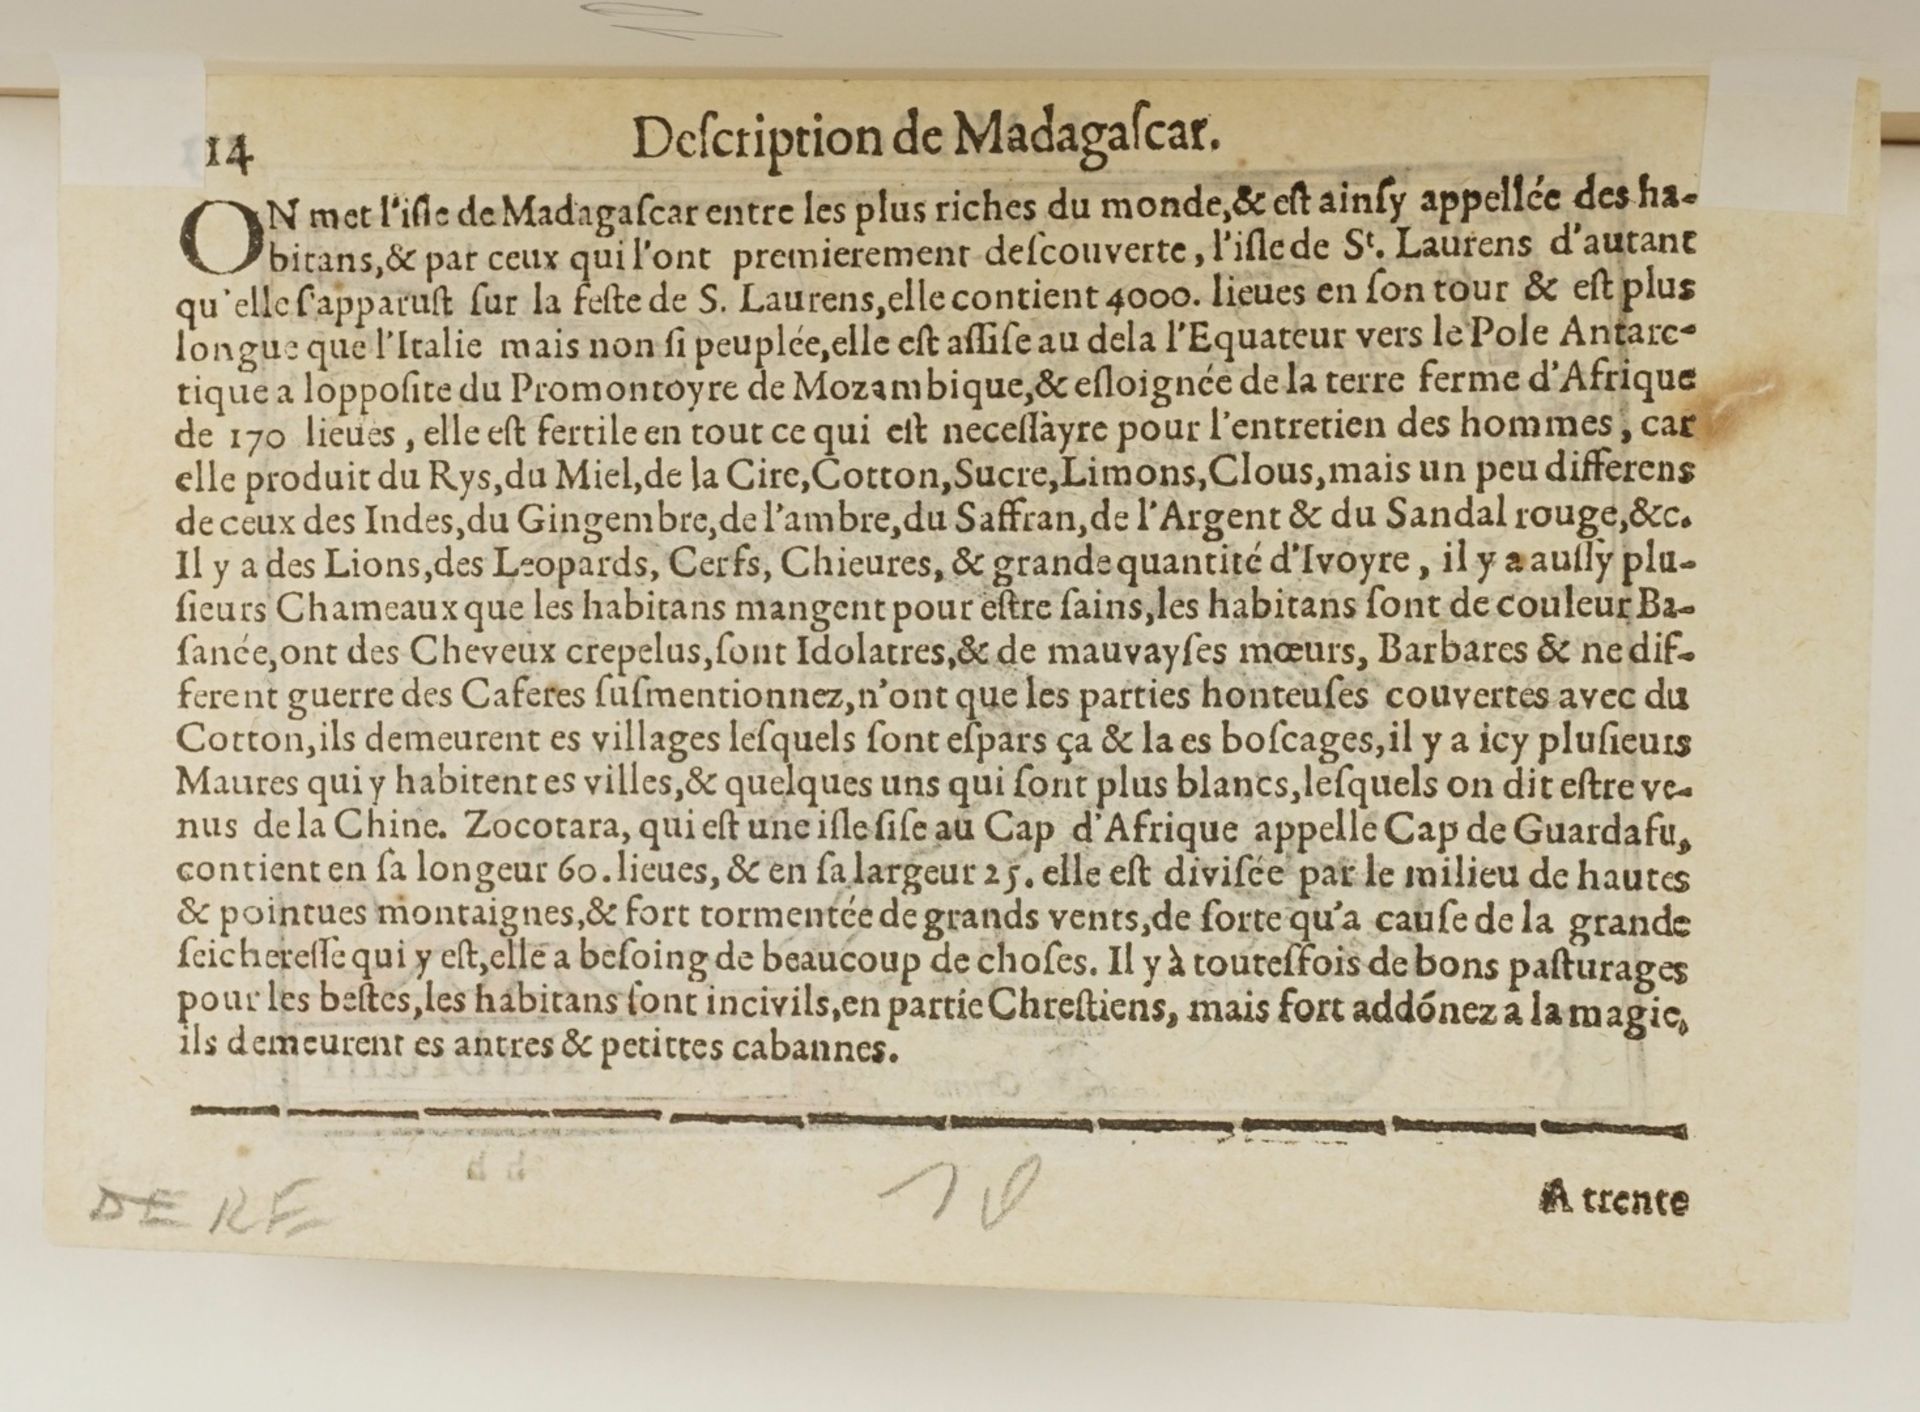 14
Deſcription de Madagaſcar.
ON met l'iſle de Madagaſcar entre les plus riches du monde, & eſt ainſy appellée des ha-
bitans, & par ceux qui l'ont premierement deſcouverte, l'iſle de St. Laurens d'autant
qu'elle ſ'apparuſt ſur la feſte de S. Laurens, elle contient 4000. lieues en ſon tour & eſt plus
longue que l'Italie mais non ſi peuplée, elle eſt aſſiſe au dela l'Equateur vers le Pole Antarc-
tique a lopposite du Promontoyre de Mozambique, & eſloignée de la terre ferme d'Afrique
de 170 lieues, elle eſt fertile en tout ce qui eſt neceſſàyre pour l'entretien des hommes, car
elle produit du Rys, du Miel, de la Cire, Cotton, Sucre, Limons, Clous, mais un peu differens
de ceux des Indes, du Gingembre, de l'ambre, du Saffran, de l'Argent & du Sandal rouge, &c.
Il y a des Lions, des Leopards, Cerfs, Chieures, & grande quantité d'Ivoyre, il y a auſſy plu-
ſieurs Chameaux que les habitans mangent pour eſtre ſains, les habitans ſont de couleur Ba-
ſanée, ont des Cheveux crepelus, ſont Idolatres, & de mauvayſes mœurs, Barbares & ne dif-
ferent guerre des Caferes ſuſmentionnez, n'ont que les parties honteuſes couvertes avec du
Cotton, ils demeurent es villages leſquels ſont eſpars ça & la es boſcages, il y a icy pluſieurs
Maures qui y habitent es villes, & quelques uns qui ſont plus blancs, leſquels on dit eſtre ve-
nus de la Chine. Zocotara, qui eſt une iſle ſiſe au Cap d'Afrique appelle Cap de Guardafu,
contient en ſa longeur 60. lieues, & en ſa largeur 25. elle eſt diviſée par le milieu de hautes
& pointues montaignes, & fort tormentée de grands vents, de ſorte qu'a cauſe de la grande
ſeichereſſe qui y eſt, elle a beſoing de beaucoup de choſes. Il y à touteſfois de bons paſturages
pour les beſtes, les habitans ſont incivils, en partie Chreſtiens, mais fort addónez a la magie,
ils demeurent es antres & petittes cabannes.
A trente